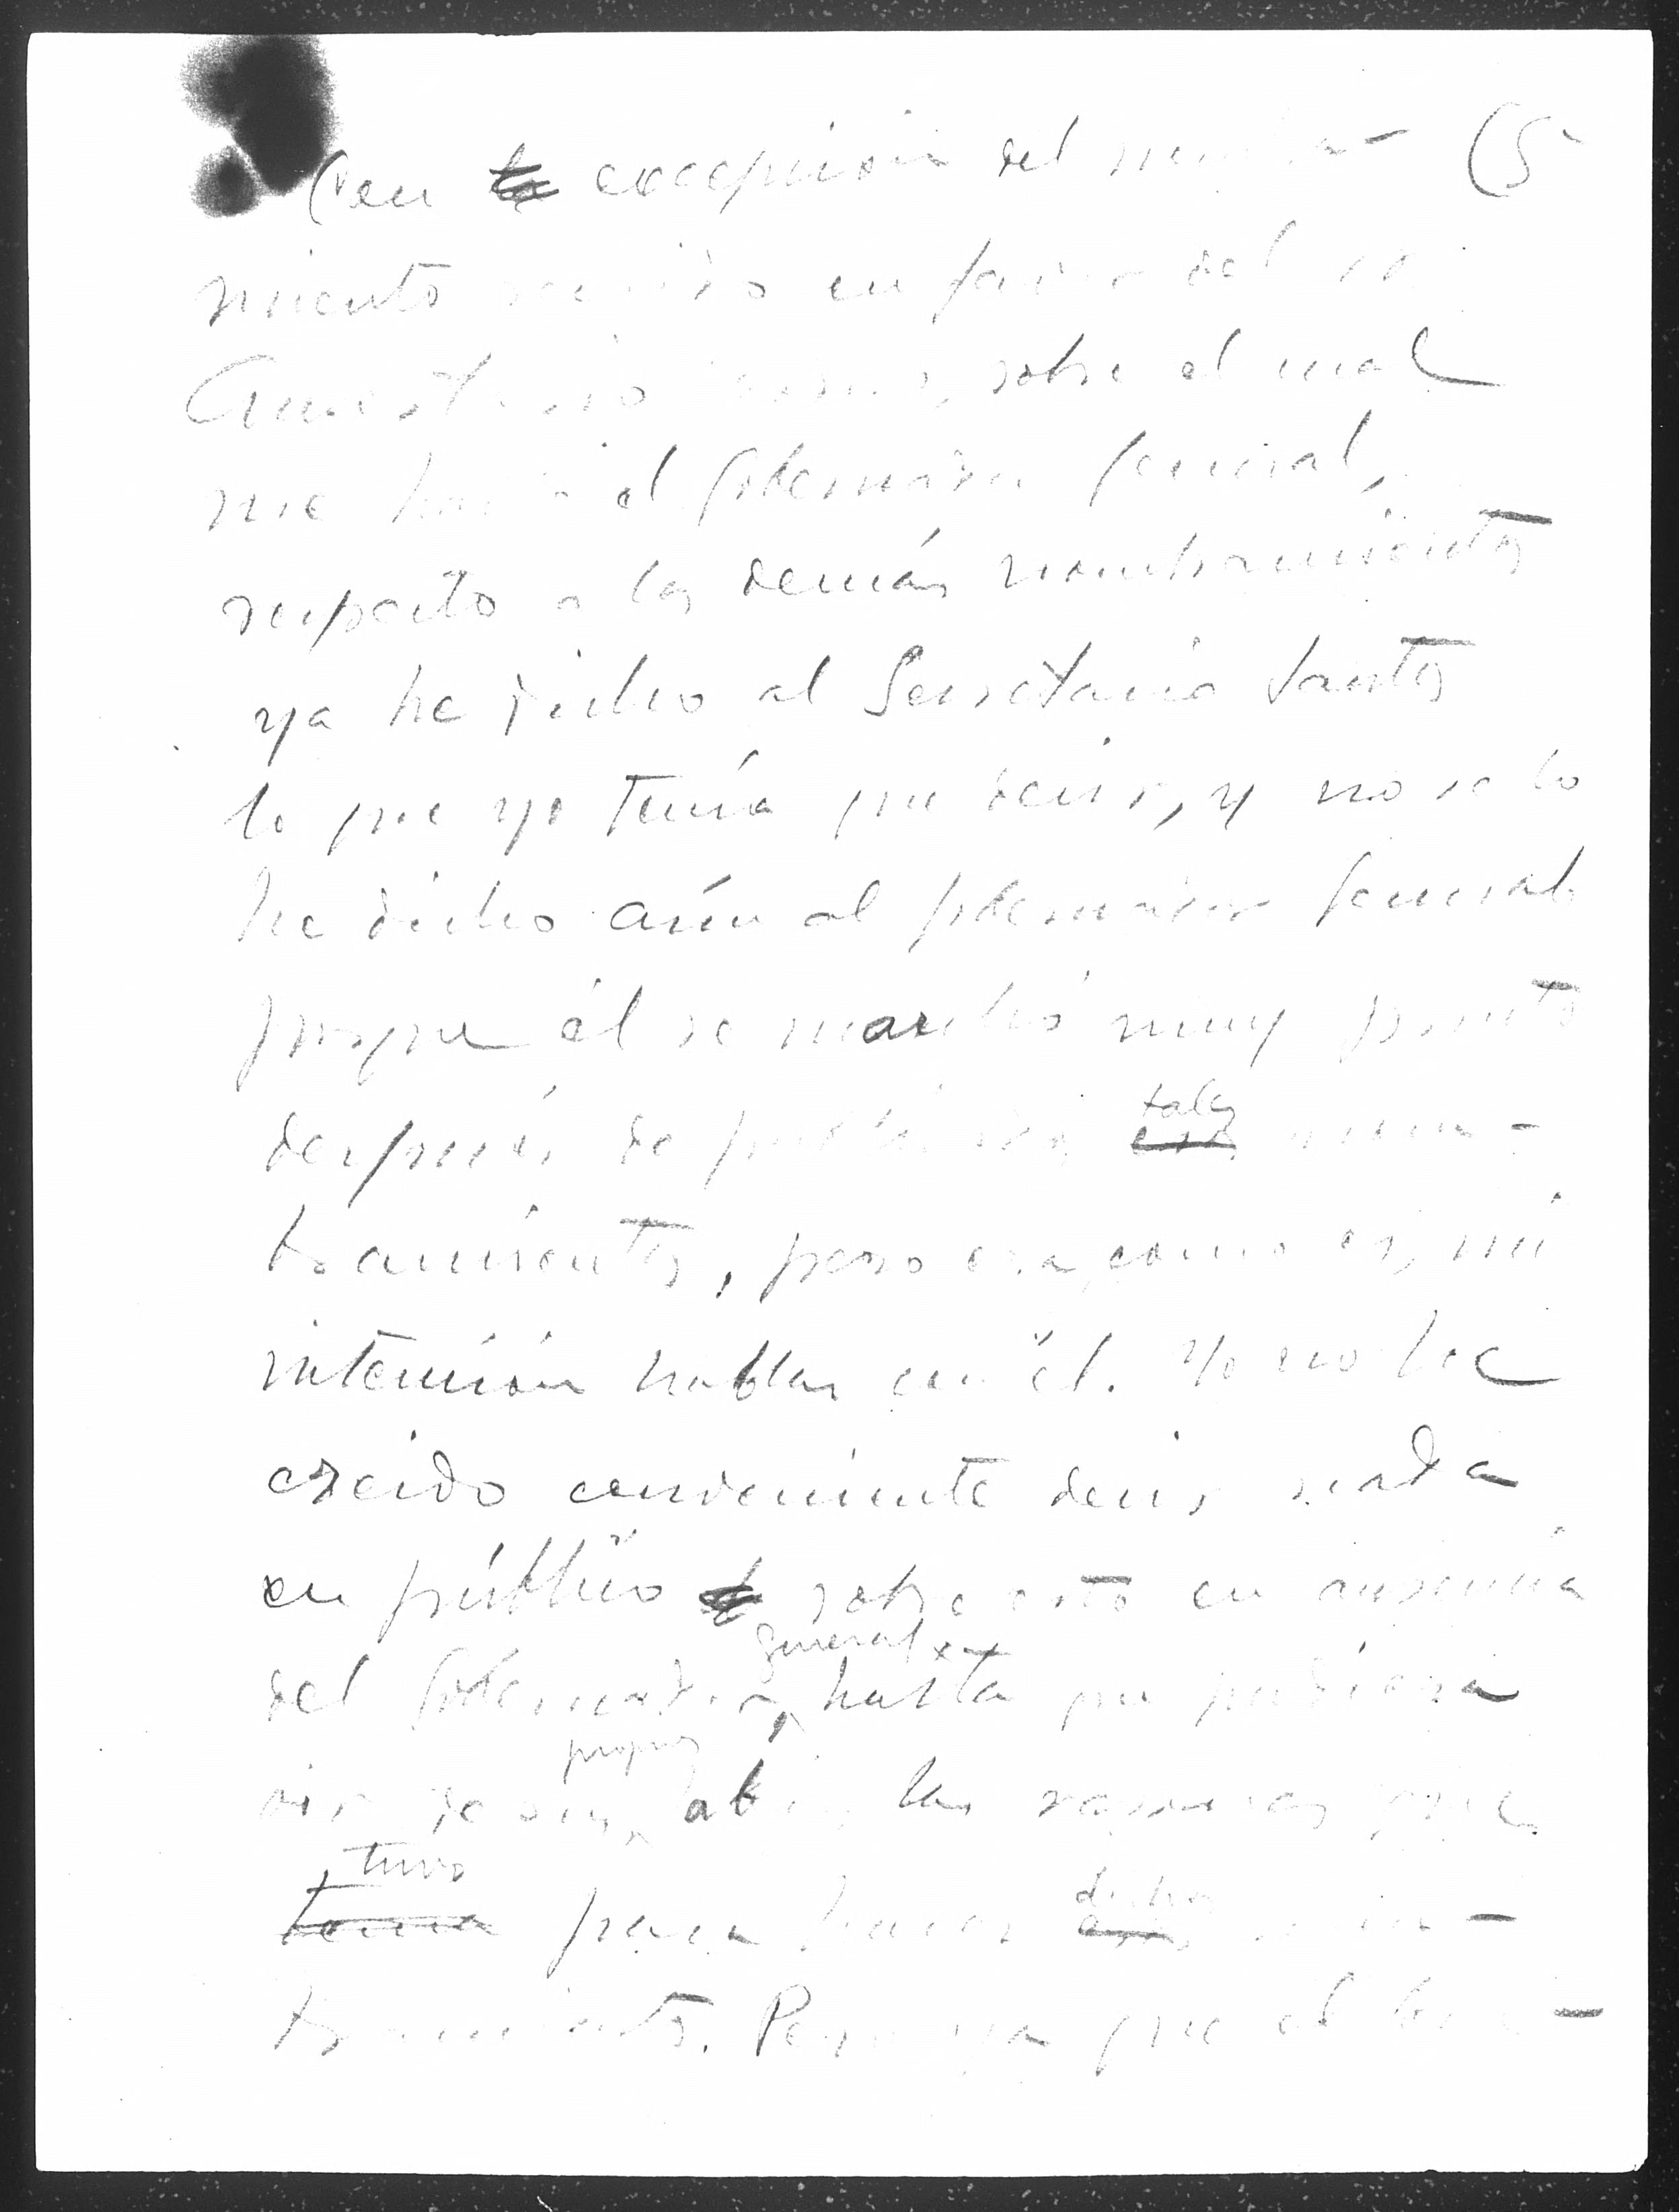 (5
Con la excepción del nombra-
miento en favor del
sobre el cual
me el Gobernador General,
respecto a los demás nombramientos
ya he dicho al Secretario Santos
lo que yo tenía que decir, y no se lo
he dicho aún al Gobernador General
porque él se marchó muy pronto
después de tales nom-
bramientos, pero era, como es, mi
intención hablar con él. Yo no he
creido conveniente decir nada
en público sobre esto en ausencia
del Gobernador General, hasta que pudiera
oir de sus propios labios las razones que
tenía tuvo para hacer dichos nom-
bramientos. Pero ya que el